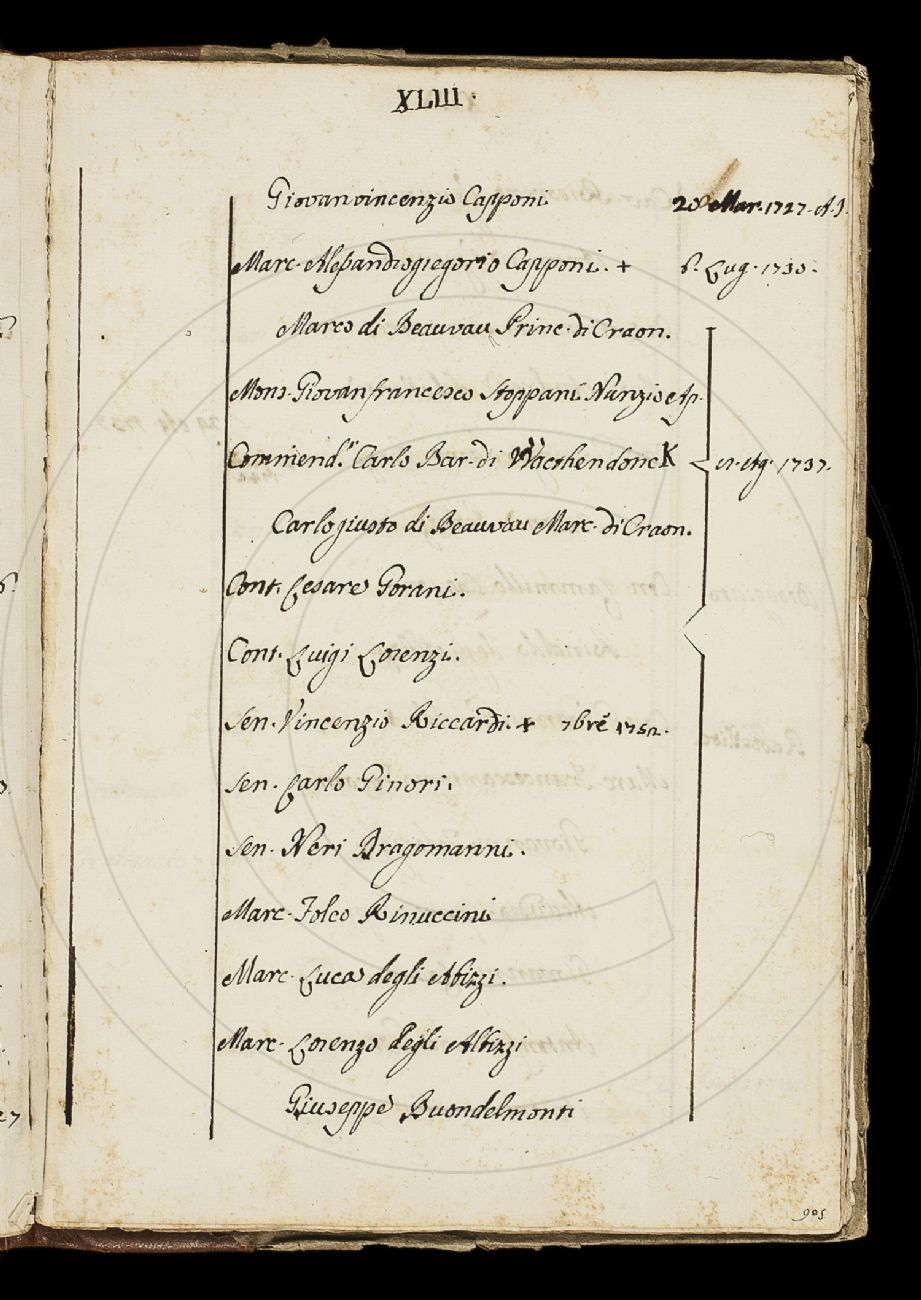 XLIII.
Giovanvincenzio Capponi 28 Mar. 1727.
Marc. Aleßandrogregorio Capponi. + Lug. 1730.
Marco di Beauvau Princ. di Craon.
Mons. Giovanfrancesco Stoppani Nunzio Ap.
Commend.r Carlo Bar. di Wacthendonck Ag. 1737.
Carlogiusto di Beauvau Marc. di Craon.
Cont. Cesare Gorani.
Cont. Luigi Lorenzi.
Sen. Vincenzio Riccardi. + 7bre 1752.
Sen. Carlo Ginori.
Sen. Neri Dragomanni.
Marc. Folco Rinuccini
Marc. Luca degli Albizzi.
Marc. Lorenzo degli Albizzi
Giuseppe Buondelmonti
905